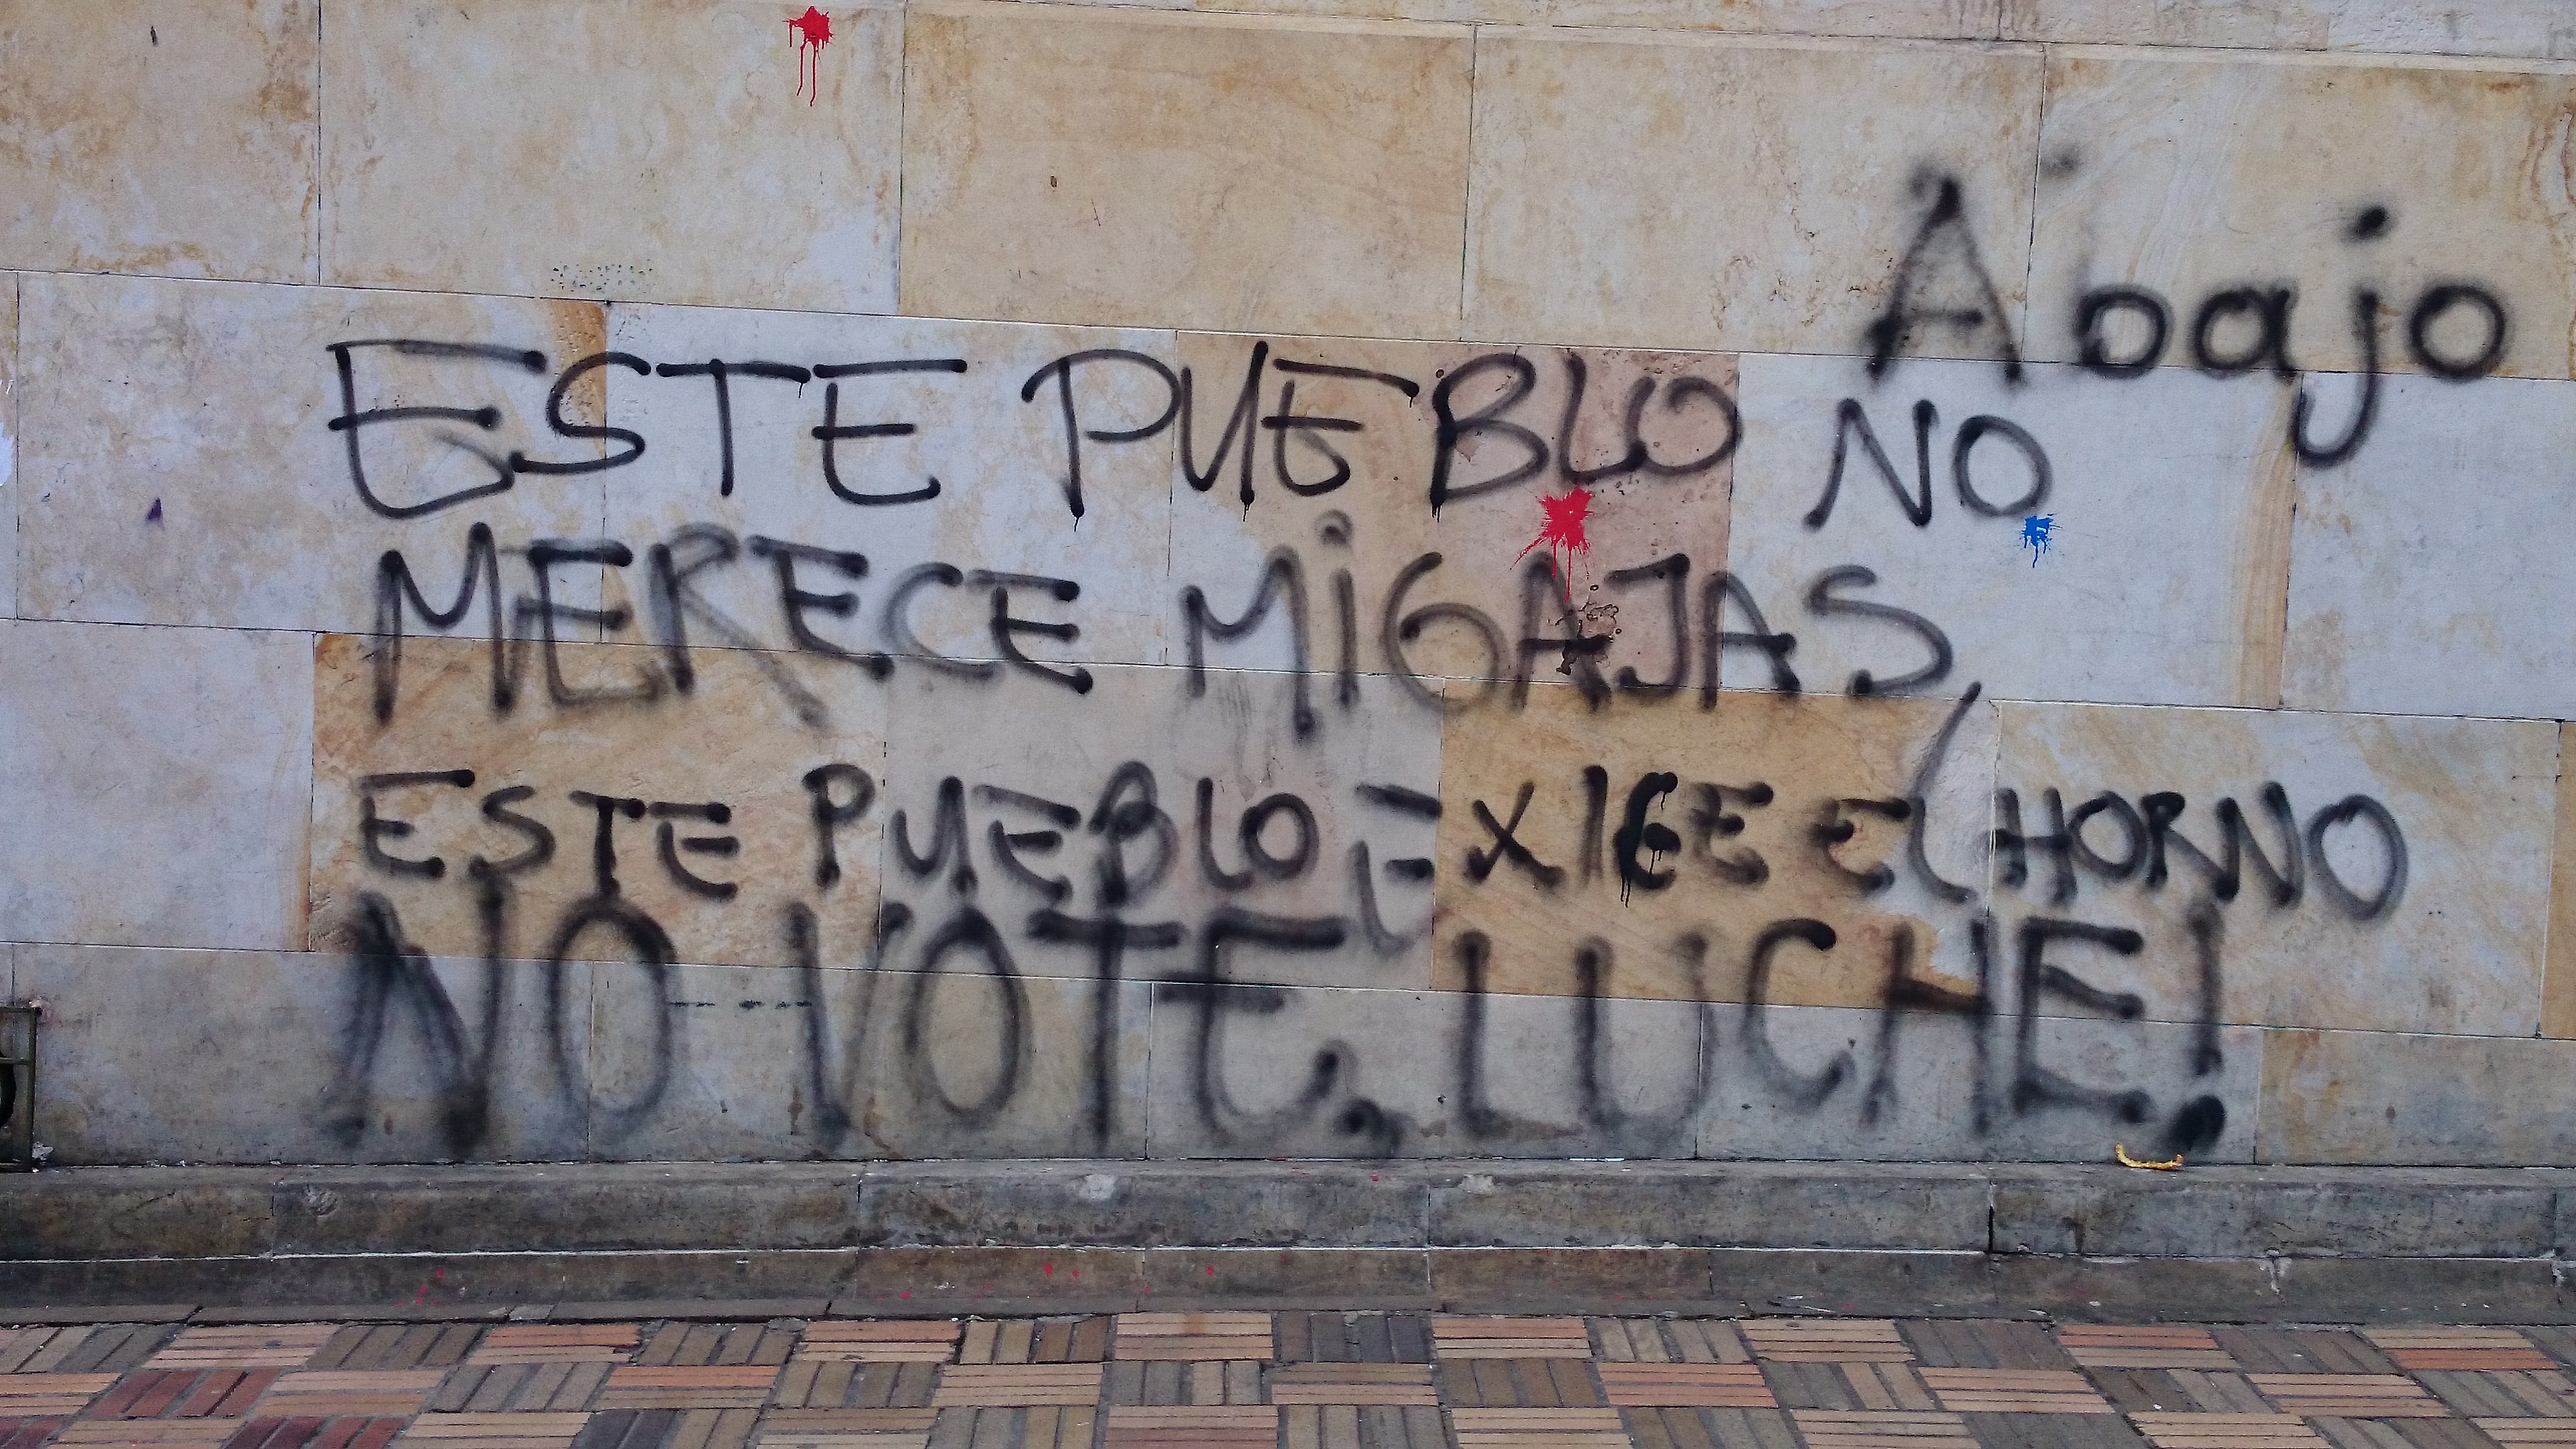 Abajo
ESTE PUEBLO NO
MERECE MIGAJAS,
ESTE PUEBLO EXIGE EL HORNO
NO VOTE. LUCHE!